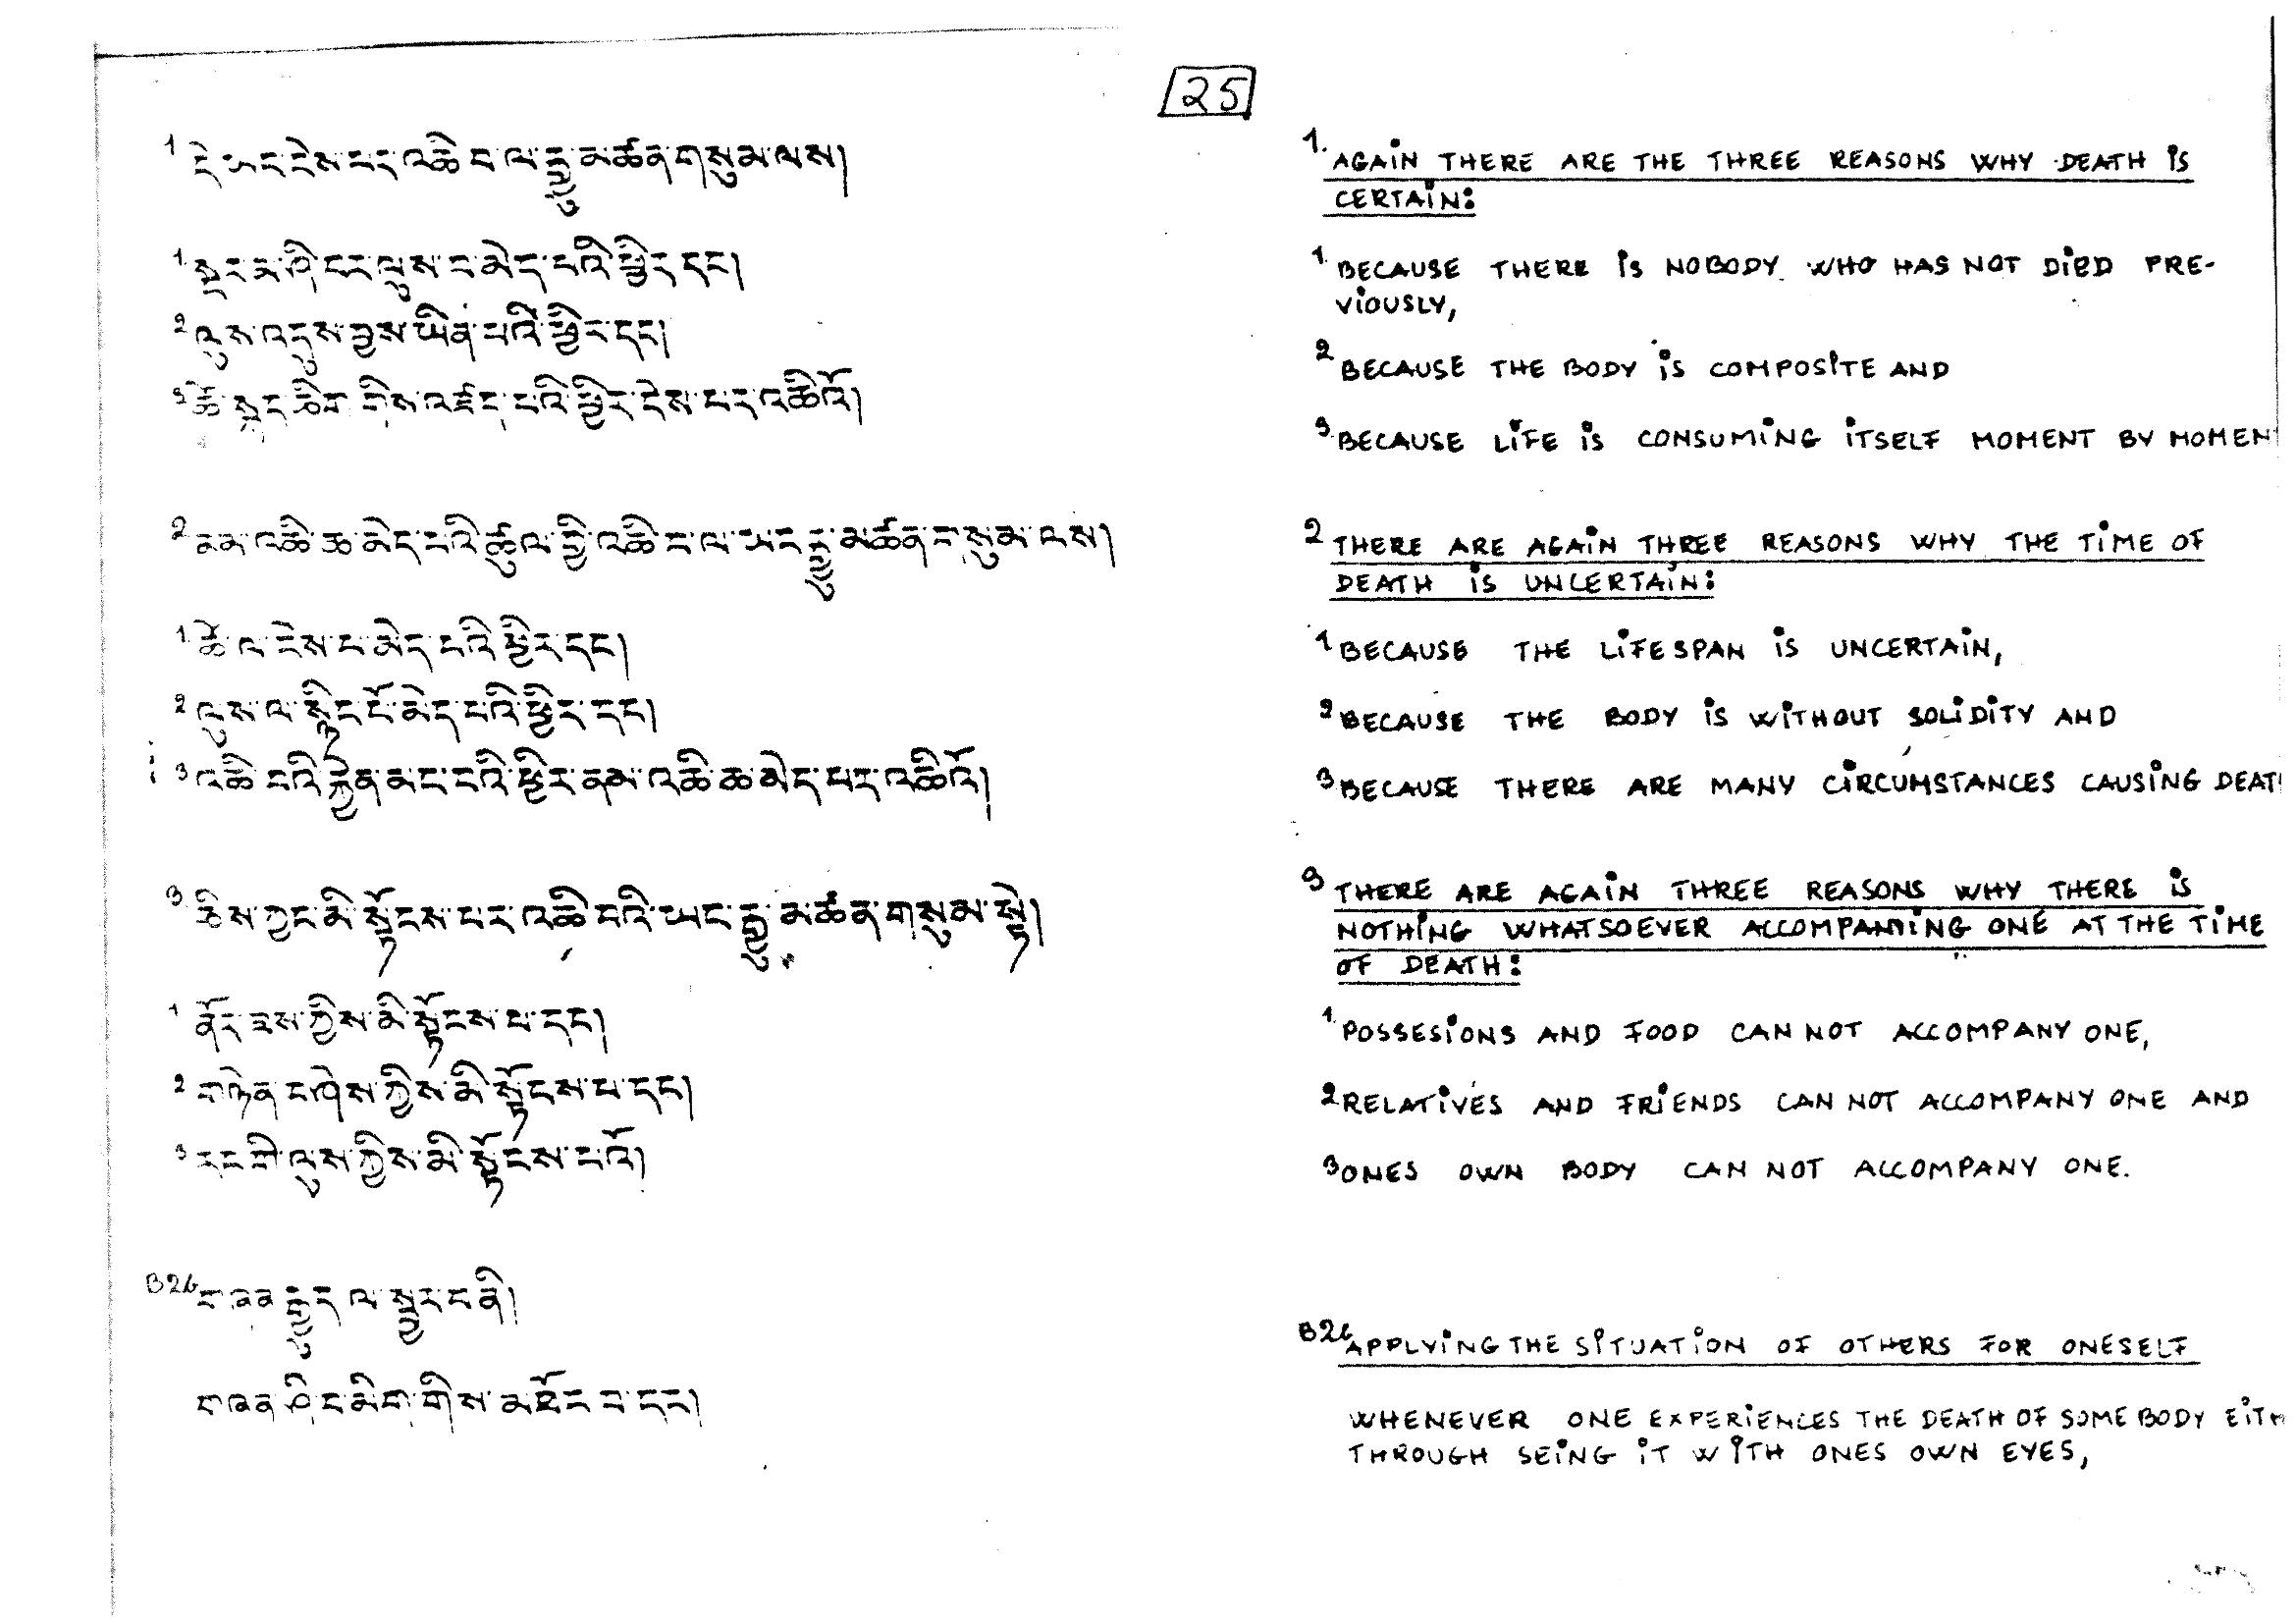 25
1 དེ་ཡང་ངེས་པར་འཆི་བ་ལ་རྒྱུ་མཚན་གསུམ་ལས།
1 སྔར་མ་ཤི་བར་ལུས་པ་མེད་པའི་ཕྱིར་དང།
2 ལུས་འདུས་བྱས་ཡིན་པའི་ཕྱིར་དང།
3 ཚེ་སྐད་ཅིག་གིས་འཛད་པའི་ཕྱིར་ངེས་པར་འཆིའོ།
2 ནམ་འཆི་ཆ་མེད་པའི་ཚུལ་གྱི་འཆི་བ་ལ་ཡང་རྒྱུ་མཚན་གསུམ་ལས།
1 ཚེ་ལ་ངེས་པ་མེད་པའི་ཕྱིར་དང།
2 ལུས་ལ་སྙིང་པོ་མེད་པའི་ཕྱིར་དང།
3 འཆི་བའི་རྐྱེན་མང་བའི་ཕྱིར་ནམ་འཆི་ཆ་མེད་པར་འཆིའོ།
3 ཅིས་ཀྱང་མི་སྟོངས་པར་འཆི་བའི་ཡང་རྒྱུ་མཚན་གསུམ་སྟེ།
1 ནོར་ཟས་ཀྱིས་མི་སྟོངས་པ་དང།
2 གཉེན་བཤེས་ཀྱིས་མི་སྟོངས་པ་དང།
3 རང་གི་ལུས་ཀྱིས་མི་སྟོངས་པའོ།
B2b གཞན་རྒྱུད་ལ་སྦྱར་བ་ནི།
གཞན་ཤི་བ་མིག་གིས་མཐོང་བ་དང།
1. AGAIN THERE ARE THE THREE REASONS WHY DEATH IS
CERTAIN:
1 BECAUSE THERE IS NOBODY WHO HAS NOT DIED PRE-
VIOUSLY,
2 BECAUSE THE BODY IS COMPOSITE AND
3 BECAUSE LIFE IS CONSUMING ITSELF MOMENT BY MOMEN
2 THERE ARE AGAIN THREE REASONS WHY THE TIME OF
DEATH IS UNCERTAIN:
1 BECAUSE THE LIFESPAN IS UNCERTAIN,
2 BECAUSE THE BODY IS WITHOUT SOLIDITY AND
3 BECAUSE THERE ARE MANY CIRCUMSTANCES CAUSING DEAT
3 THERE ARE AGAIN THREE REASONS WHY THERE IS
NOTHING WHATSOEVER ACCOMPANYING ONE AT THE TIME
OF DEATH:
1 POSSESIONS AND FOOD CAN NOT ACCOMPANY ONE,
2 RELATIVES AND FRIENDS CAN NOT ACCOMPANY ONE AND
3 ONES OWN BODY CAN NOT ACCOMPANY ONE.
B2b APPLYING THE SITUATION OF OTHERS FOR ONESELF
WHENEVER ONE EXPERIENCES THE DEATH OF SOMEBODY EITH
THROUGH SEING IT WITH ONES OWN EYES,